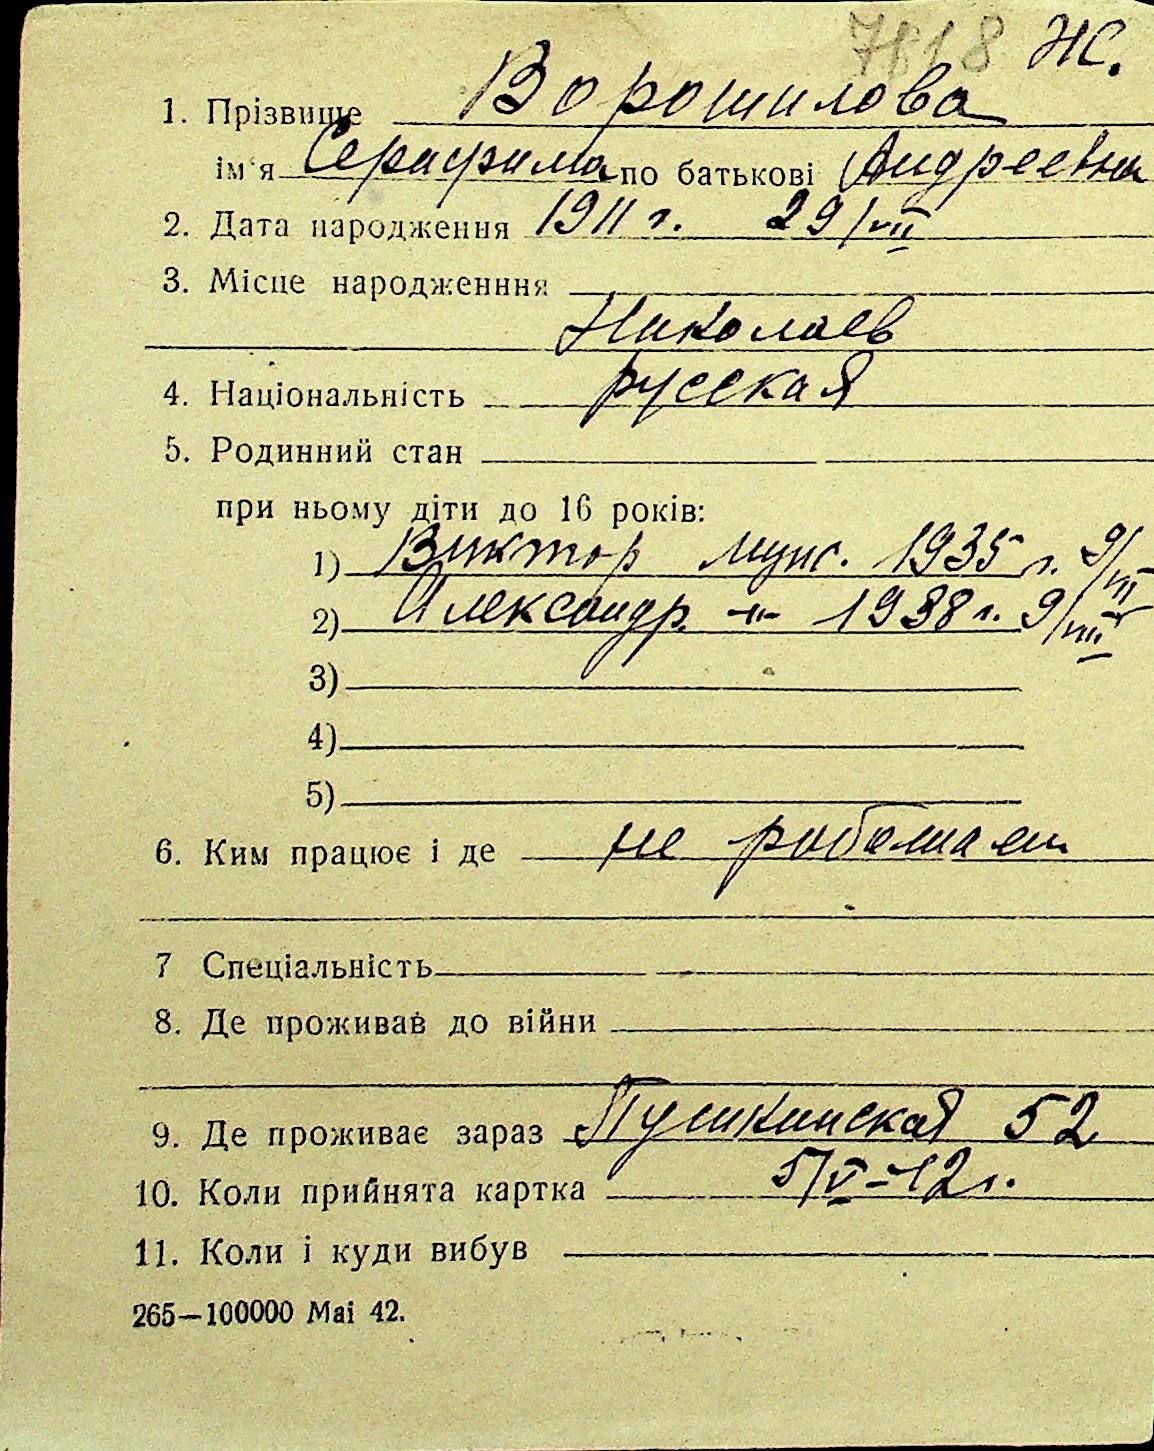 7818 Ж.
1. Прізвище Ворошилова
ім'я Серафима по батькові Андреевна
2. Дата народження 1911 г. 29/VII
3. Місце народженння
Николаев
4. Національність русская
5. Родинний стан
при ньому діти до 16 років:
1) Виктор муж. 1935 г. 9/VII
2) Александр. -"- 1938 г. 9/VIII
3)
4)
5)
6. Ким працює і де не работает
7 Спеціальність
8. Де проживав до війни
9. Де проживає зараз Пушкинская 52
10. Коли прийнята картка 5/V-42 г.
11. Коли і куди вибув
265—100000 Mai 42.